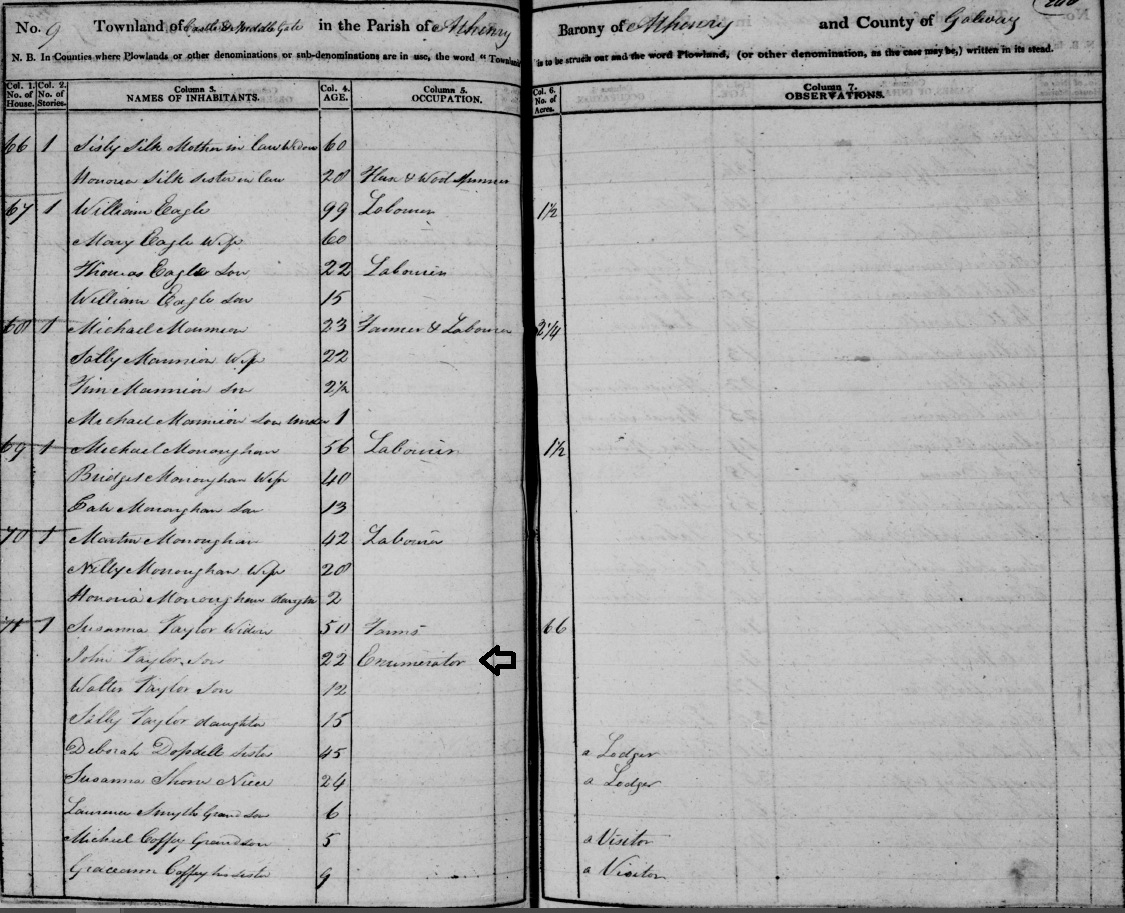 No. 9 Townland of Castle & Middle Gate in the Parish of Athenry Barony of Athenry and County of Galway
N. B. In Counties where Plowlands or other denominations or sub-denominations are in use, the word "Townland" is to be struck out and the word Plowland, (or other denomination, as the case may be,) written in its stead.
Col. 1. No. of House. Col. 2. No. of Stories. Column 3. NAMES OF INHABITANTS. Col. 4. AGE. Column 5. OCCUPATION. Col. 6. No. of Acres. Column 7. OBSERVATIONS.
66 1 Sisly Silk Mother in law Widow 60
Honoria Silk Sister in law 20 Flax & Wool Spinner
67 1 William Eagle 99 Labourer 1½
Mary Eagle Wife 60
Thomas Eagle Son 22 Labourer
William Eagle Son 15
68 1 Michael Mannion 23 Farmer & Labourer 2¼
Sally Mannion Wife 22
Tim Mannion Son 2½
Michael Mannion Son Under 1
69 1 Michael Monoughan 56 Labourer 1½
Bridget Monoughan Wife 40
Monoughan Son 13
70 1 Martin Monoughan 42 Labourer
Nelly Monoughan Wife 20
Honoria Monoughan daughter 2
71 1 Susanna Taylor Widow 50 Farms 66
John Taylor Son 22 Enumerator
Walter Taylor Son 12
Sally Taylor daughter 15
Deborah Sister 45 a Lodger
Susanna Thorn Niece 24 a Lodger
Laurence Smyth Grand Son 6
Michael Coffey Grandson 5 a Visitor
Graceann Coffey his sister 9 a Visitor